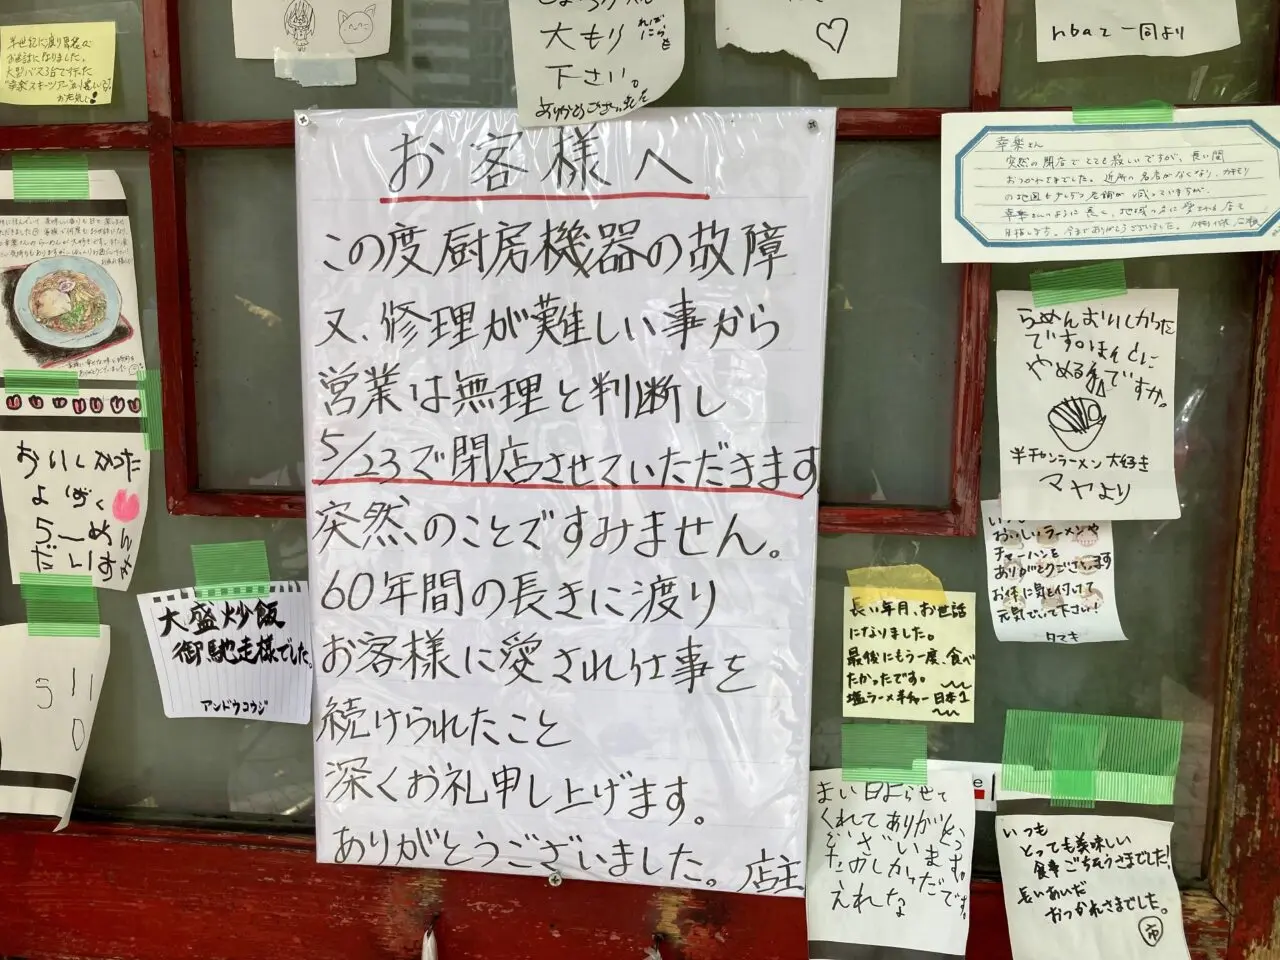 お客様へ
この度厨房機器の故障
又、修理が難しい事から
営業は無理と判断し
5/23で閉店させていただきます
突然のことですみません。
60年間の長きに渡り
お客様に愛され仕事を
続けられたこと
深くお礼申し上げます。
ありがとうございました。店主
大もり
下さい。
ありがとうございました
一同より
幸楽さん
突然の閉店でとても寂しいですが、長い間
おつかれさまでした。近所の名店がなくなり、
らめんおいしかった
です。ほんとに
やめるんですか。
半チャンラーメン大好き
マヤより
おいしいラーメンや
チャーハンを
ありがとうございます
お体に気を付けて
元気でいて下さい!
タマキ
長い年月、お世話
になりました。
最後にもう一度、食べ
たかったです。
塩ラーメン半チャー日本1
まい日よらせて
くれてありがとう
ございます。
たのしかったです。
えれな
いつも
とっても美味しい
食事ごちそうさまでした!
長いあいだ
おつかれさまでした。
市
おいしかった
らーめん
だいすき
大盛炒飯
御馳走様でした。
アンドウコウジ
半世紀に渡り
お世話になりました。
511
0